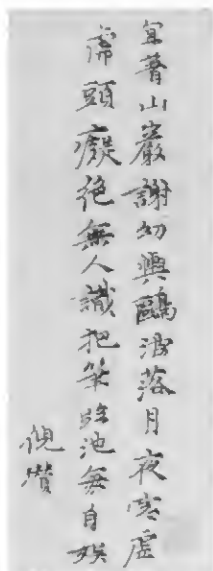 宜著山巖謝幼輿鷗波落月夜寒虛
虎頭癡絕無人識把筆臨池每自娛
倪瓚